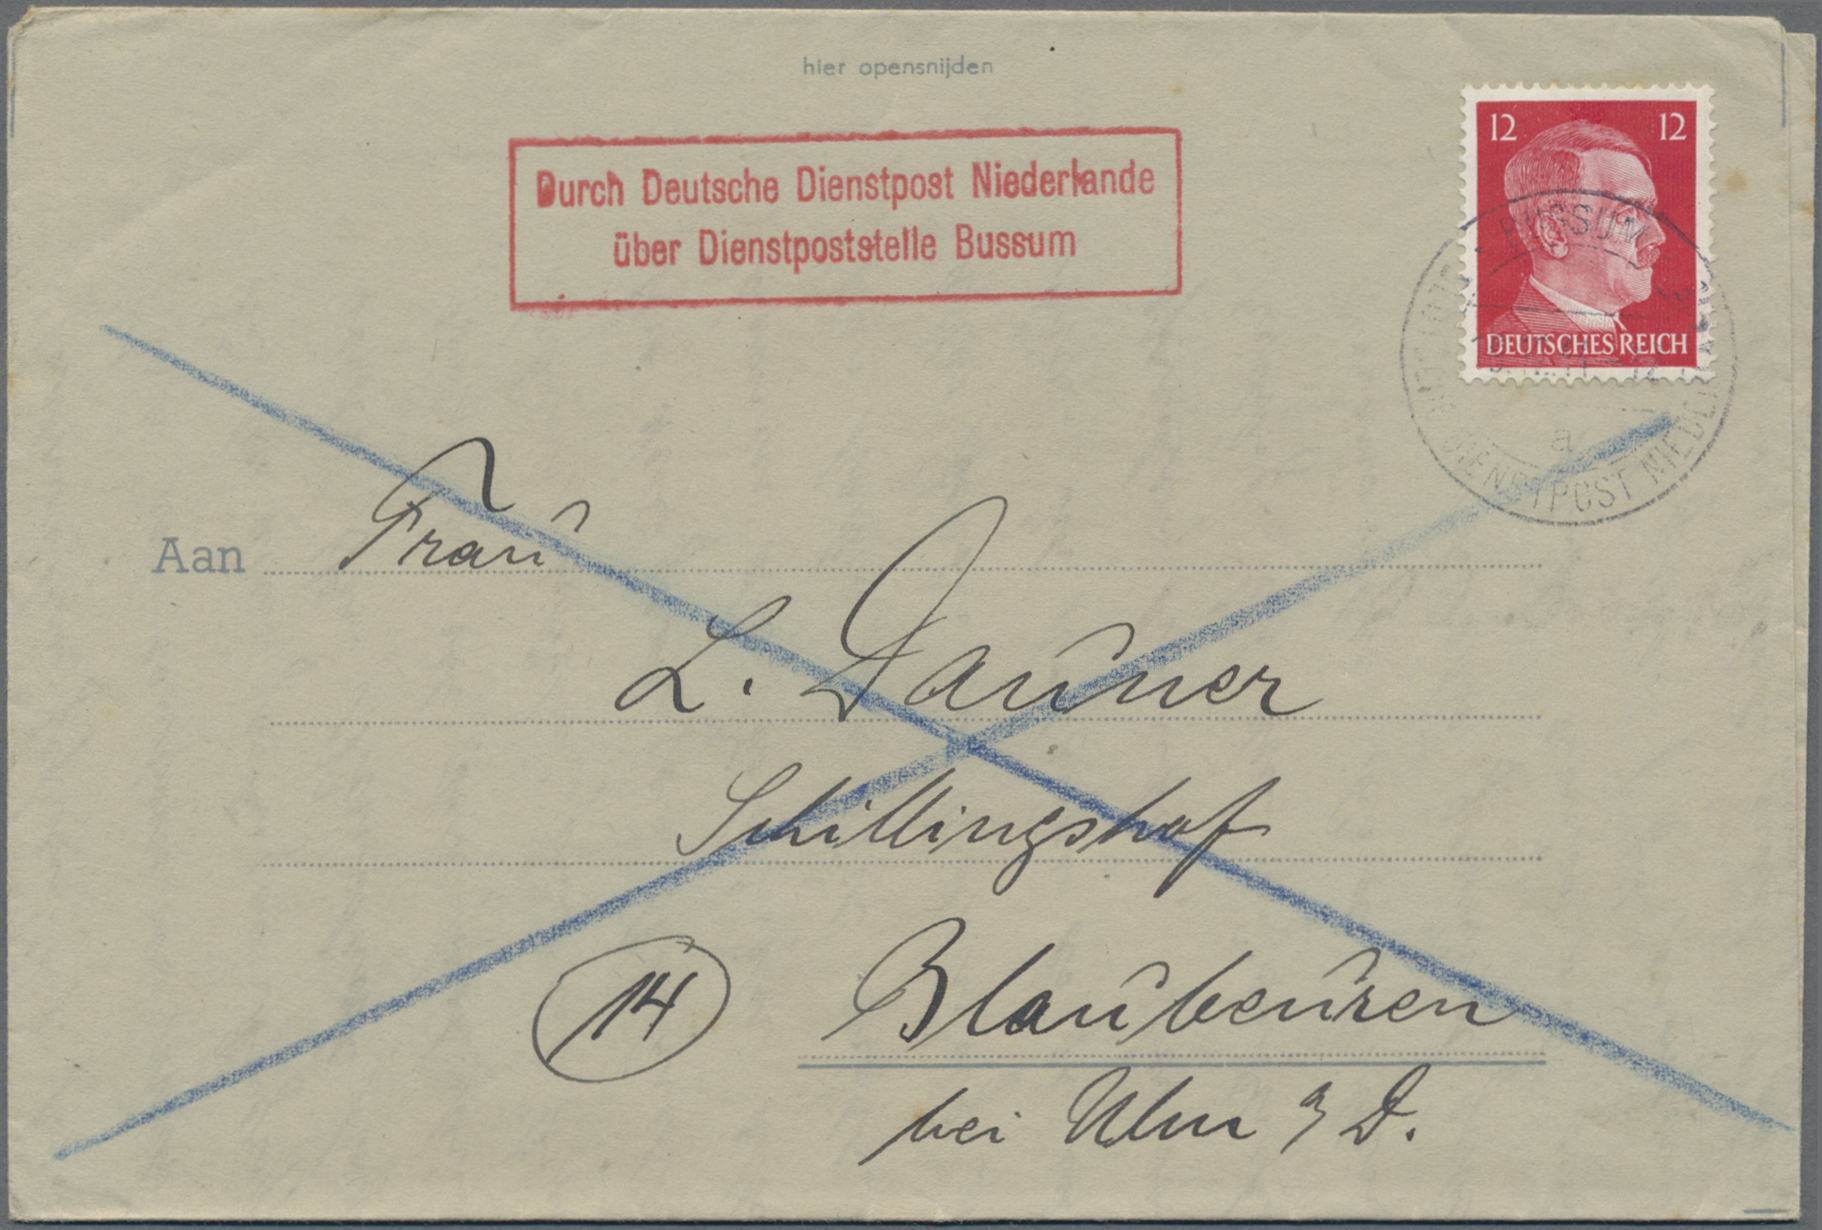 hier opensnijden
Durch Deutsche Dienstpost Niederlande
über Dienstpoststelle Bussum
12 12
DEUTSCHES REICH
BUSSUM
a
DIENSTPOST NIEDERLANDE
Aan Frau
L. Dauner
Schillingshof
14 Blaubeuren
bei Ulm a/D.